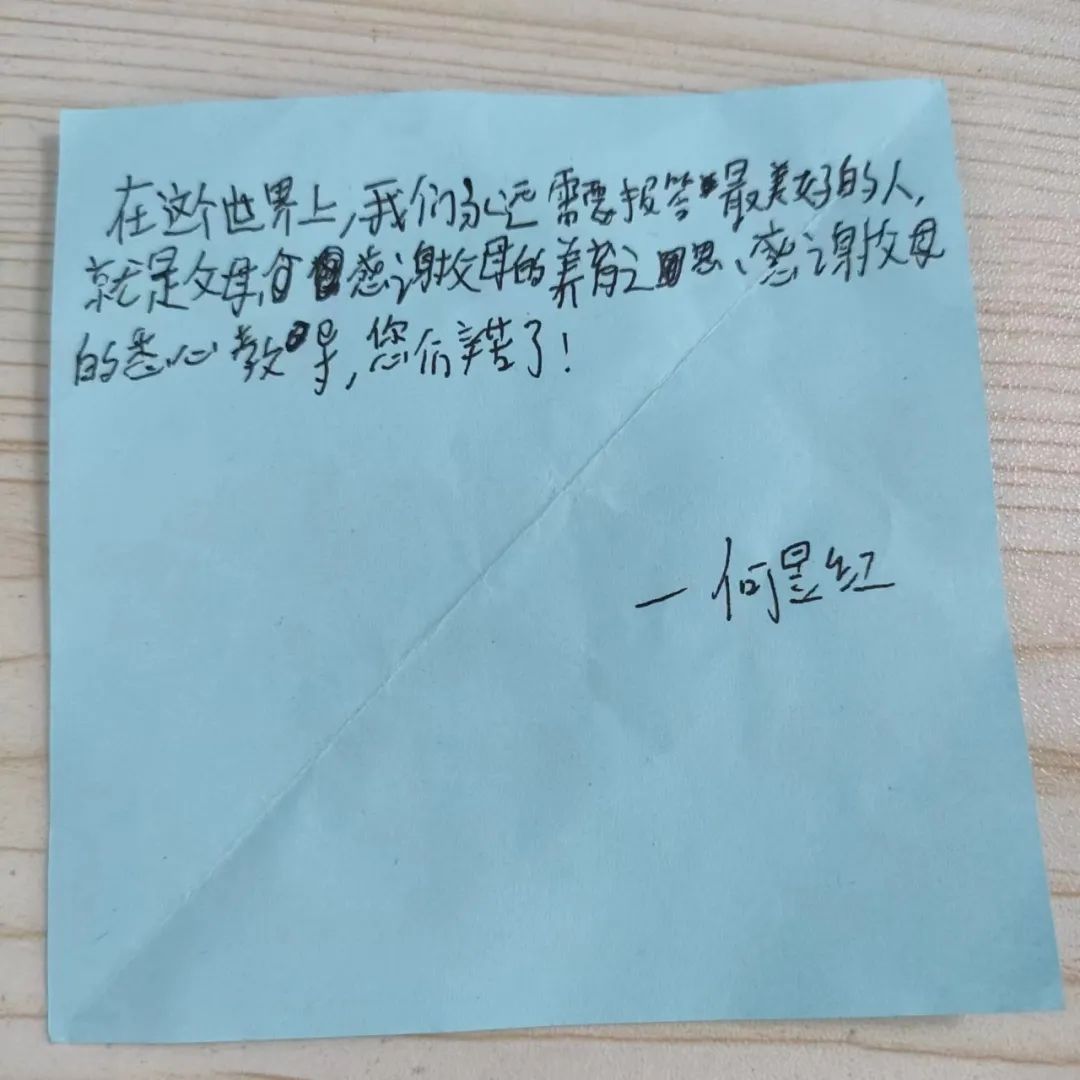 在这个世界上,我们永远需要报答最美好的人,
就是父母,感谢父母的养育之恩、感谢父母
的悉心教导,您们辛苦了!
— 何昱红